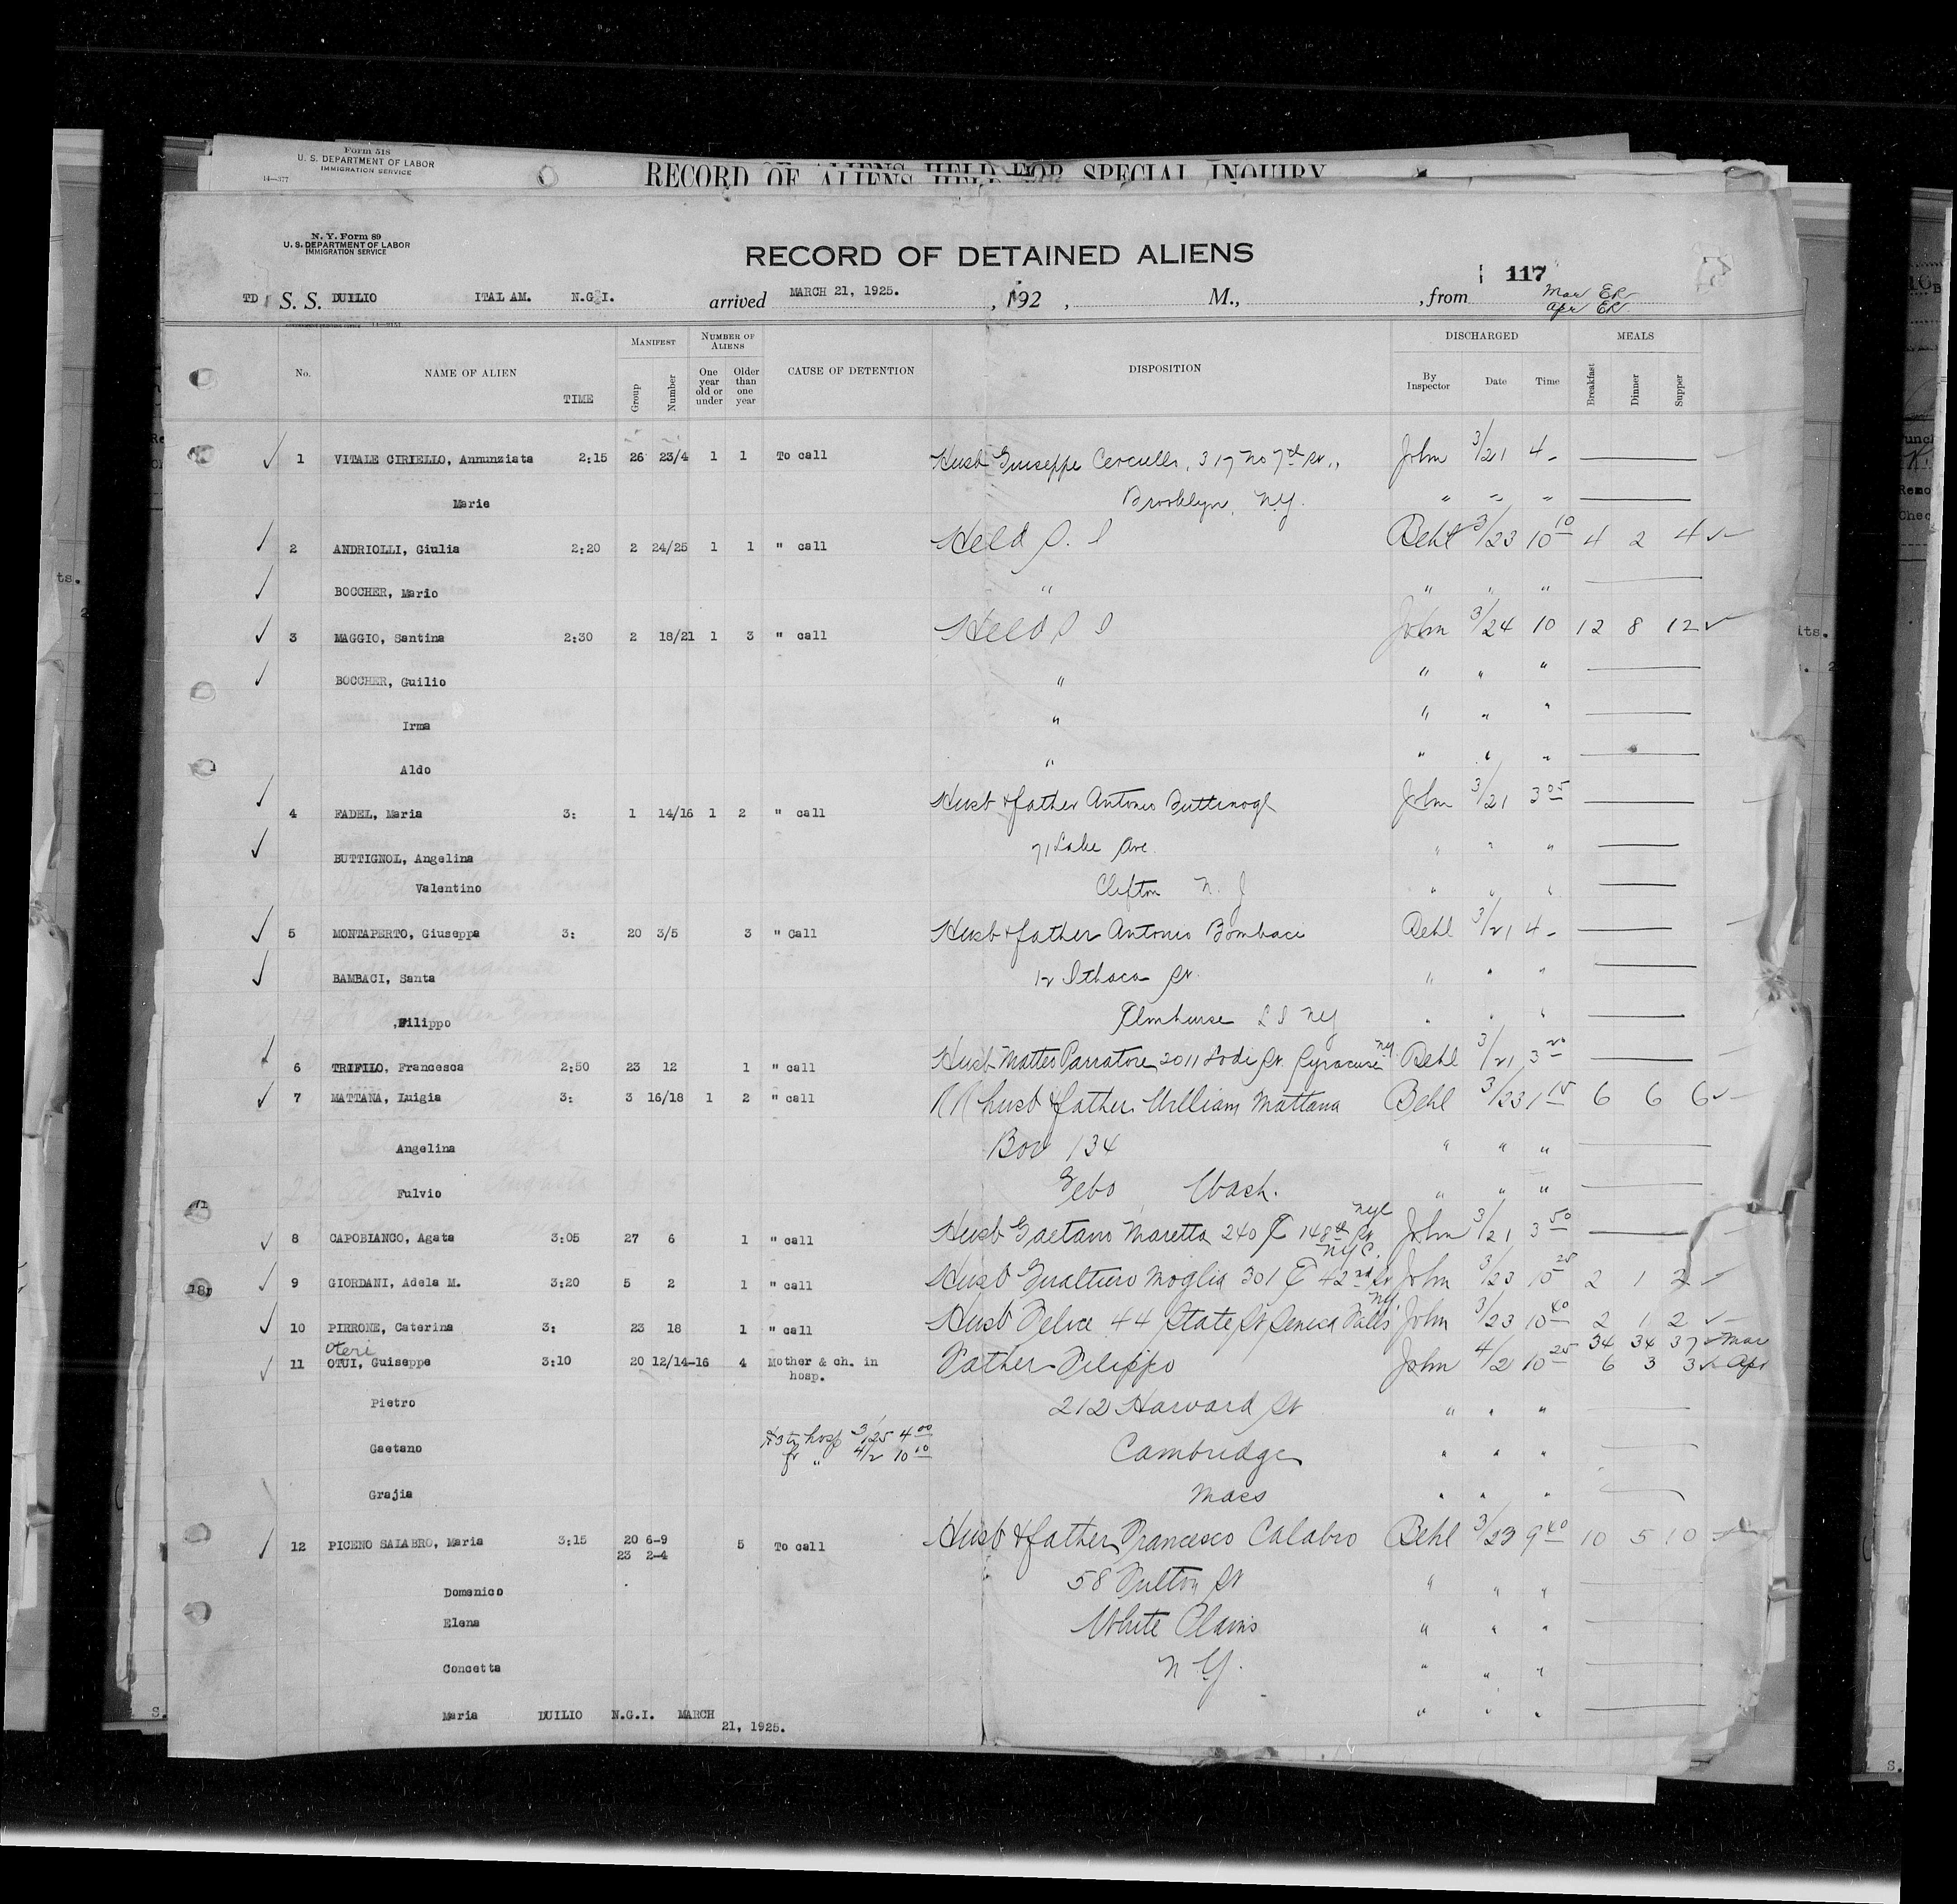 Form 518
U. S. DEPARTMENT OF LABOR
IMMIGRATION SERVICE
14—377
RECORD OF ALIENS HELD FOR SPECIAL INQUIRY
N. Y. Form 89
U. S. DEPARTMENT OF LABOR
IMMIGRATION SERVICE
RECORD OF DETAINED ALIENS
117
TD S. S. DUILIO ITAL AM. N.G.I. arrived MARCH 21, 1925. , 192 , M., , from Mar ER
Apr ER
No. NAME OF ALIEN TIME MANIFEST Group Number NUMBER OF ALIENS One year old or under Older than one year CAUSE OF DETENTION DISPOSITION DISCHARGED By Inspector Date Time MEALS Breakfast Dinner Supper
1 VITALE CIRIELLO, Annunziata 2:15 26 23/4 1 1 To call Husb Guiseppe Cerculla, 317 No 7th St., John 3/21 4 -
Maria Brooklyn, N.Y. " " "
2 ANDRIOLLI, Giulia 2:20 2 24/25 1 1 " call Held S. I Behl 3/23 10 10 4 2 4
BOCCHER, Mario " " " "
3 MAGGIO, Santina 2:30 2 18/21 1 3 " call Held S I John 3/24 10 12 8 12
BOCCHER, Guilio " " " "
Irma " " " "
Aldo " " " "
4 FADEL, Maria 3: 1 14/16 1 2 " call Husb & father Antonio Buttinogl John 3/21 3 05
BUTTIGNOL, Angelina 71 Lake Ave. " " "
Valentino Clifton N. J " " "
5 MONTAPERTO, Giuseppa 3: 20 3/5 3 " Call Husb & father Antonio Bombaci Behl 3/21 4 -
BAMBACI, Santa 12 Ithaca St. " " "
,Filippo Elmhurse L I NY " " "
6 TRIFILO, Francesca 2:50 23 12 1 " call Husb Matteo Parratore 2011 Lodi St. Syracuse NY Behl 3/21 3 20
7 MATTANA, Luigia 3: 3 16/18 1 2 " call RR husb & father William Mattana Behl 3/23 1 15 6 6 6
Angelina Box 134 " " "
Fulvio Gebo Wash. " " "
8 CAPOBIANCO, Agata 3:05 27 6 1 " call Husb Gaetano Maretta 240 E 148th St NYC John 3/21 3 50
9 GIORDANI, Adela M. 3:20 5 2 1 " call Husb Gualtiero Moglia 301 E 42nd St NYC. John 3/23 10 25 2 1 2
10 PIRRONE, Caterina 3: 23 18 1 " call Husb Felice 44 State St Seneca Falls NY John 3/23 10 40 2 1 2
Oteri 34 34 37 Mar
11 OTUI, Guiseppe 3:10 20 12/14-16 4 Mother & ch. in hosp. Father Filippo John 4/2 10 25 6 3 3 Apr
Pietro 212 Harvard St " " "
Gaetano #3 to hosp 3/25 4 00 fr " 4/2 10 10 Cambridge " " "
Grajia Mass " " "
12 PICENO SALABRO, Maria 3:15 20 6-9 23 2-4 5 To call Husb & father Francesco Calabro Behl 3/23 9 40 10 5 10
Domenico 58 Fulton St " " "
Elena White Plains " " "
Concetta N Y. " " "
Maria DUILIO N.G.I. MARCH 21, 1925. " " "